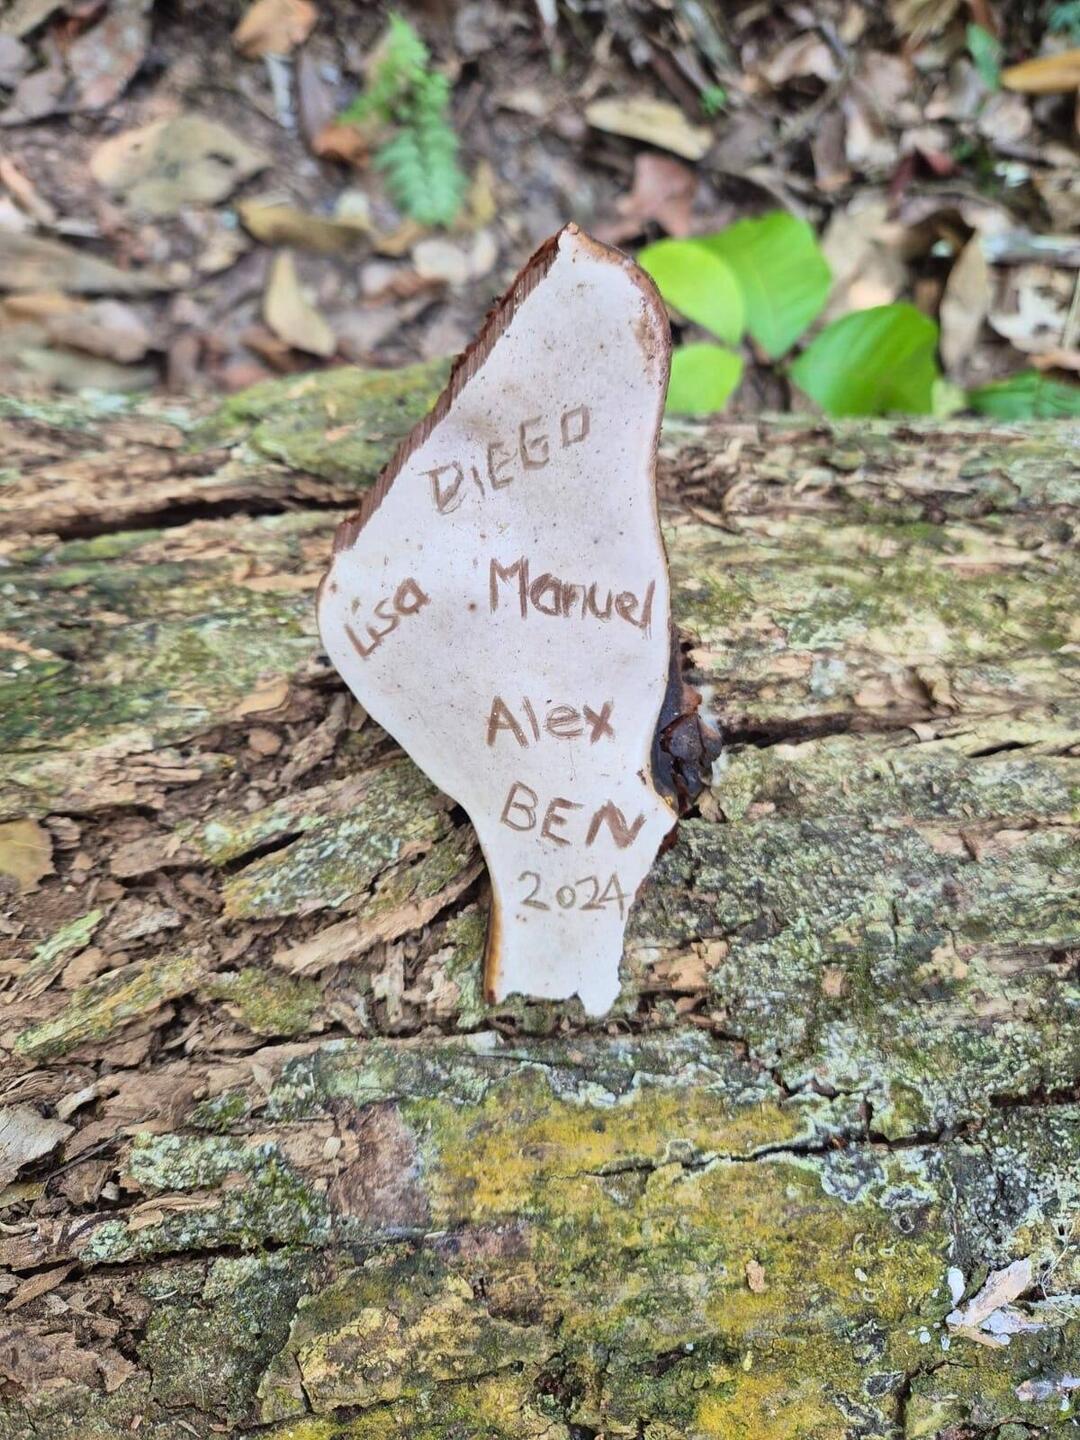 DIEGO
Lisa Manuel
Alex
BEN
2024